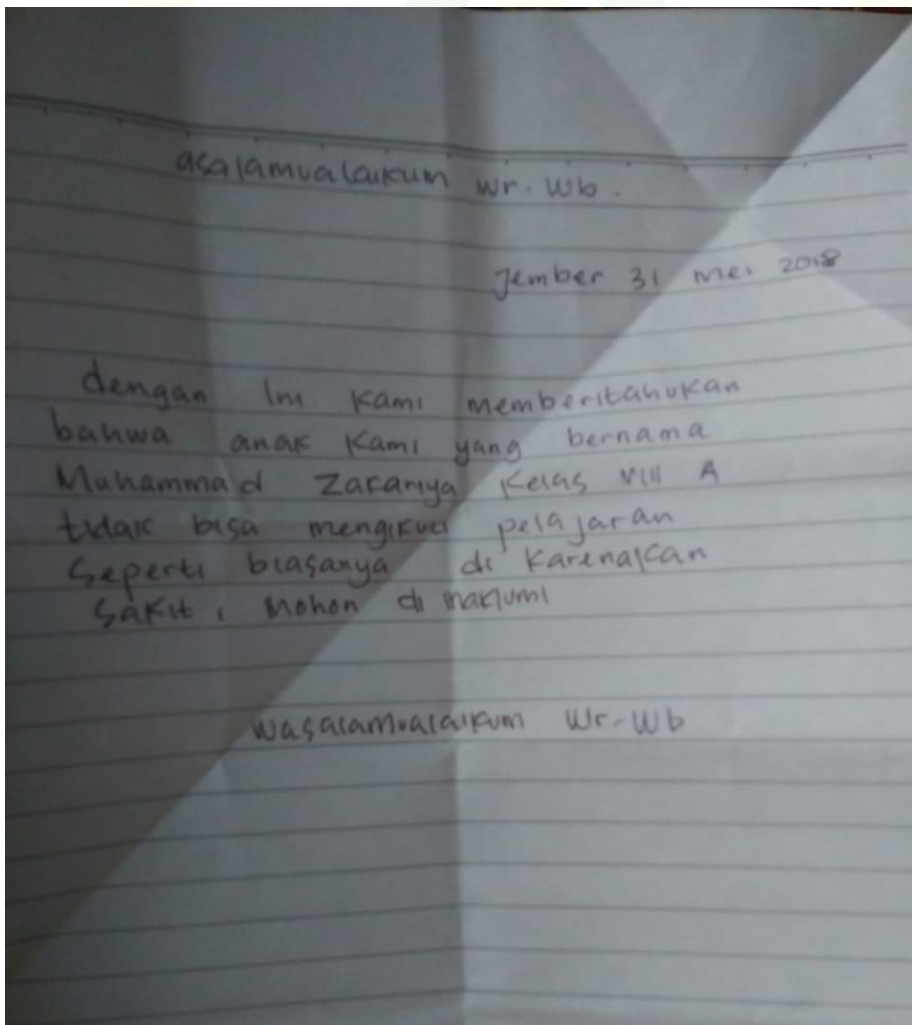 asalamualaikum Wr. Wb.
Jember 31 mei 2018
dengan Ini Kami memberitahukan
bahwa anak Kami yang bernama
Muhammad Zakariya Kelas VIII A
tidak bisa mengikuti pelajaran
Seperti biasanya di Karenakan
Sakit, Mohon di maklumi
wasalamualaikum Wr-Wb